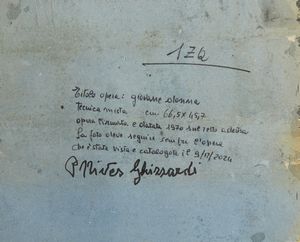 1Z9
Titolo opera: giovane donna
Tecnica mista cm 66,5x49,7
opera firmata e datata 1970 sul retto a destra
La foto deve seguire sempre l'opera
che è stata vista e catalogata il 9/17/2024
Nives Ghizzardi